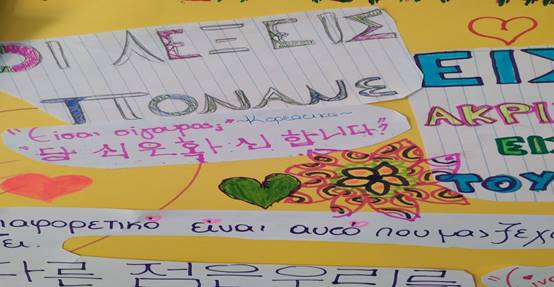 ΟΙ ΛΕΞΕΙΣ
ΠΟΝΑΝΕ
"Είσαι σίγουρος;" ~Κορεάτικα~
ΕΙΣ
ΑΚΡΙ
ΕΙ
ΤΟΥ
ιαφορετικό είναι αυτό που μας ξεχω
ζει.
다른 점은 우리를